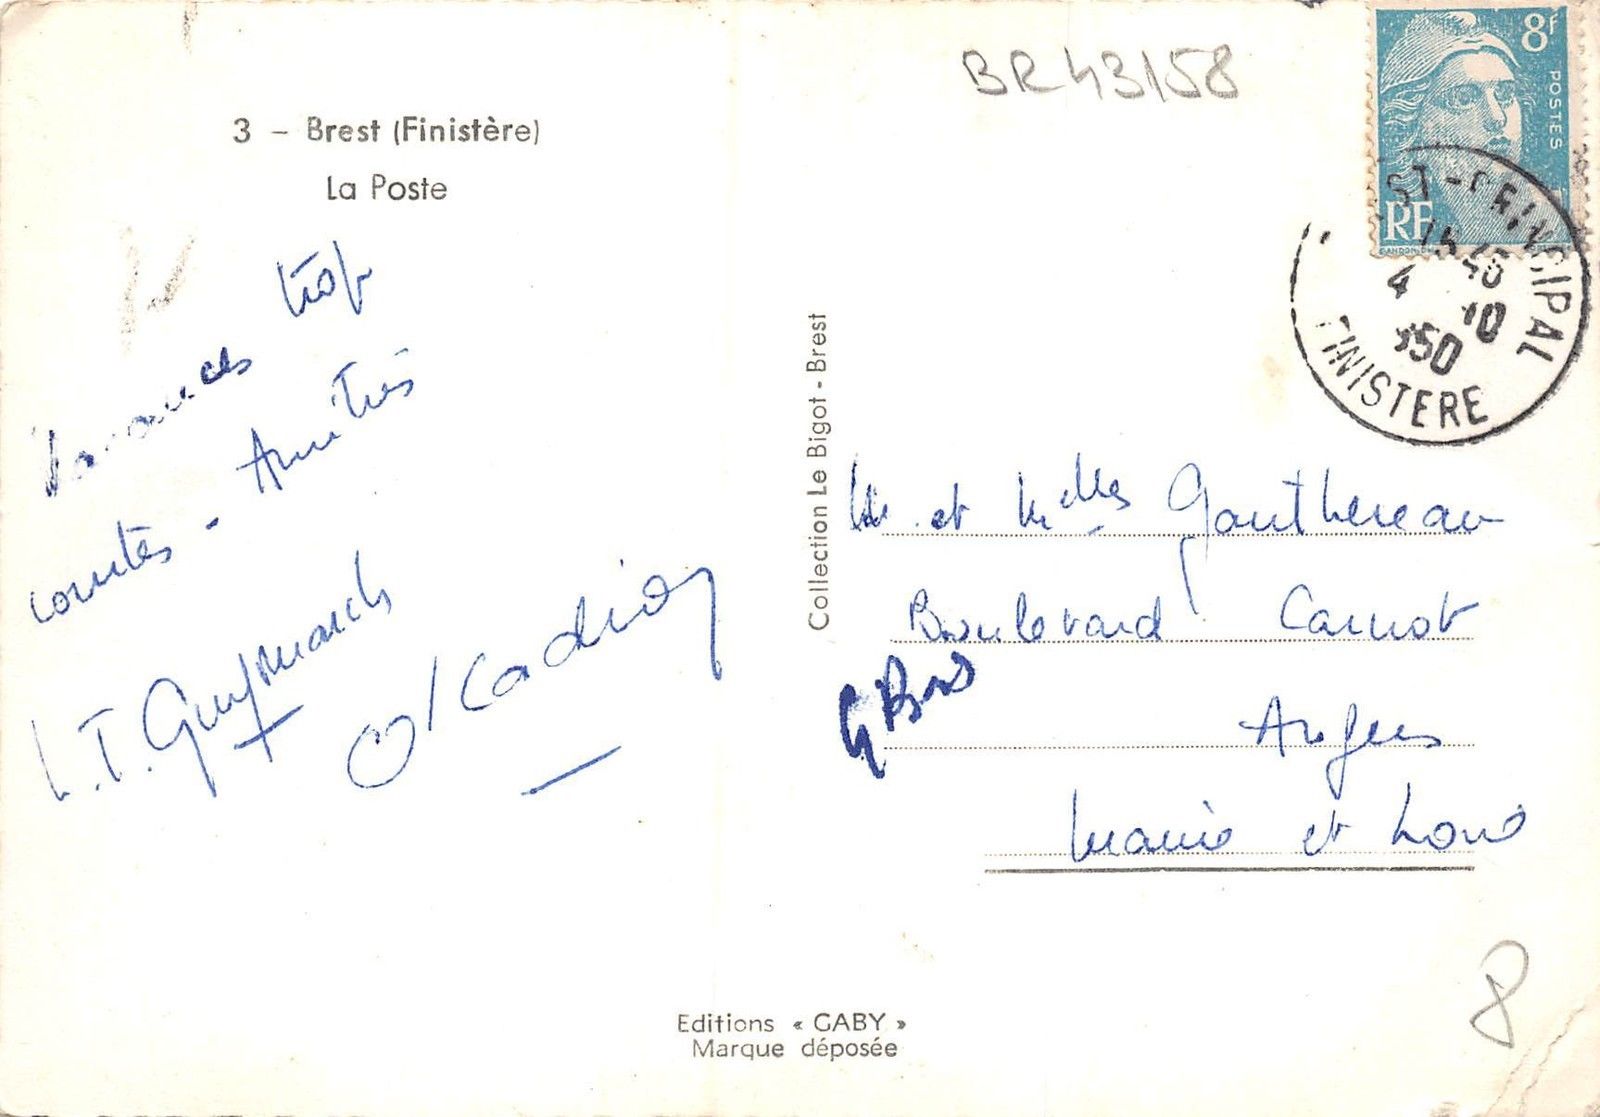 3 - Brest (Finistère)
La Poste
Vacances trop
courtes - Amitiés
BR43158
8F
POSTES
RF
ST-PRINCIPAL
4 10
950
FINISTERE
Collection Le Bigot - Brest
et Melles Gauthereau
Boulevard Carnot
Angers
Maine et Loire
Editions « GABY »
Marque déposée
8